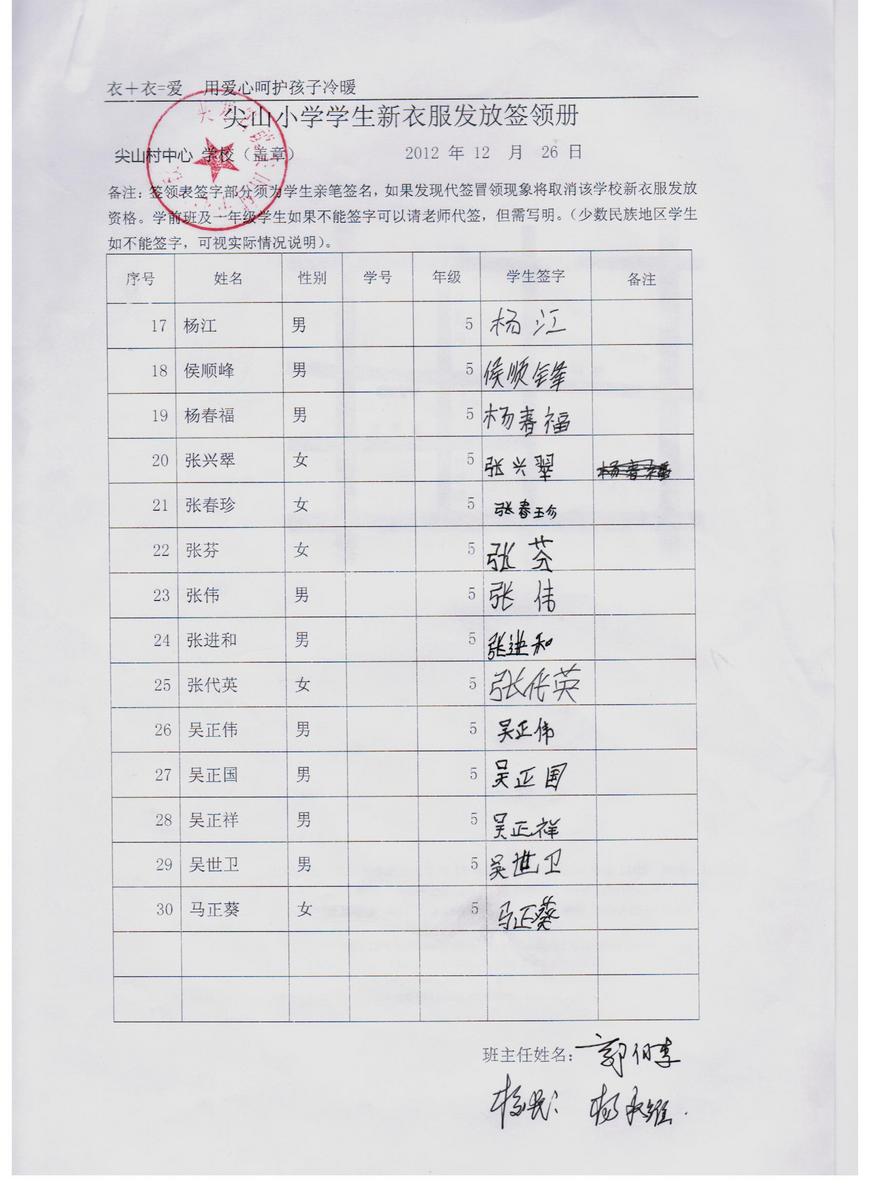 衣+衣=爱 用爱心呵护孩子冷暖
尖山小学学生新衣服发放签领册
尖山村中心 学校（盖章） 2012 年 12 月 26 日
备注：签领表签字部分须为学生亲笔签名，如果发现代签冒领现象将取消该学校新衣服发放
资格。学前班及一年级学生如果不能签字可以请老师代签，但需写明。（少数民族地区学生
如不能签字，可视实际情况说明）。
序号 姓名 性别 学号 年级 学生签字 备注
17 杨江 男 5 杨江
18 侯顺峰 男 5 侯顺锋
19 杨春福 男 5 杨春福
20 张兴翠 女 5 张兴翠 杨春福
21 张春珍 女 5 张春珍
22 张芬 女 5 张芬
23 张伟 男 5 张伟
24 张进和 男 5 张进和
25 张代英 女 5 张代英
26 吴正伟 男 5 吴正伟
27 吴正国 男 5 吴正国
28 吴正祥 男 5 吴正祥
29 吴世卫 男 5 吴世卫
30 马正葵 女 5 马正葵
班主任姓名：